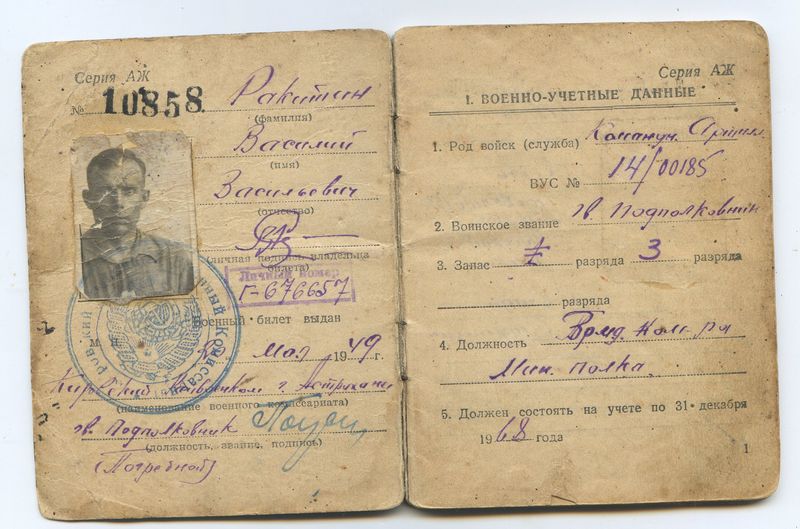 Серия АЖ
№ 10858
Ракитин
(фамилия)
Василий
(имя)
Васильевич
(отчество)
(личная подпись владельца
билета)
Личный номер
Г-676657
Военный билет выдан
М. П. Мая 1949 г.
Кировский Райвоенком г. Астрахани
(наименование военного комиссариата)
гв. Подполковник
(должность, звание, подпись)
(Погребной)
Серия АЖ
I. ВОЕННО-УЧЕТНЫЕ ДАННЫЕ
1. Род войск (служба) Командн. Артил.
ВУС № 14/00185
2. Воинское звание гв. Подполковник
3. Запас I разряда 3 разряда
разряда
4. Должность Ком-ра
Мин. полка.
5. Должен состоять на учете по 31 декабря
1968 года
1